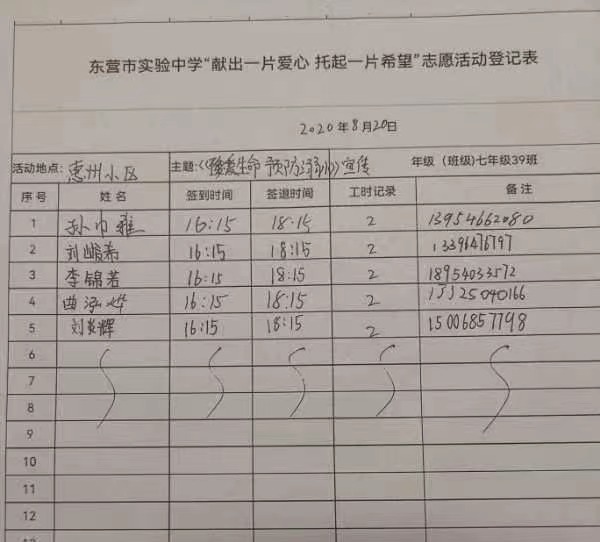 东营市实验中学“献出一片爱心 托起一片希望”志愿活动登记表
2020年8月20日
活动地点：惠州小区 主题：《珍爱生命 预防溺水》宣传 年级（班级)七年级39班
序号 姓名 签到时间 签退时间 工时记录 备注
1 孙巾雅 16:15 18:15 2 13954662080
2 刘峻希 16:15 18:15 2
3 李锦若 16:15 18:15 2 18954033572
4 曲泓烨 16:15 18:15 2 15125040166
5 刘美辉 16:15 18:15 2 15006857798
6
7
8
9
10
11
12